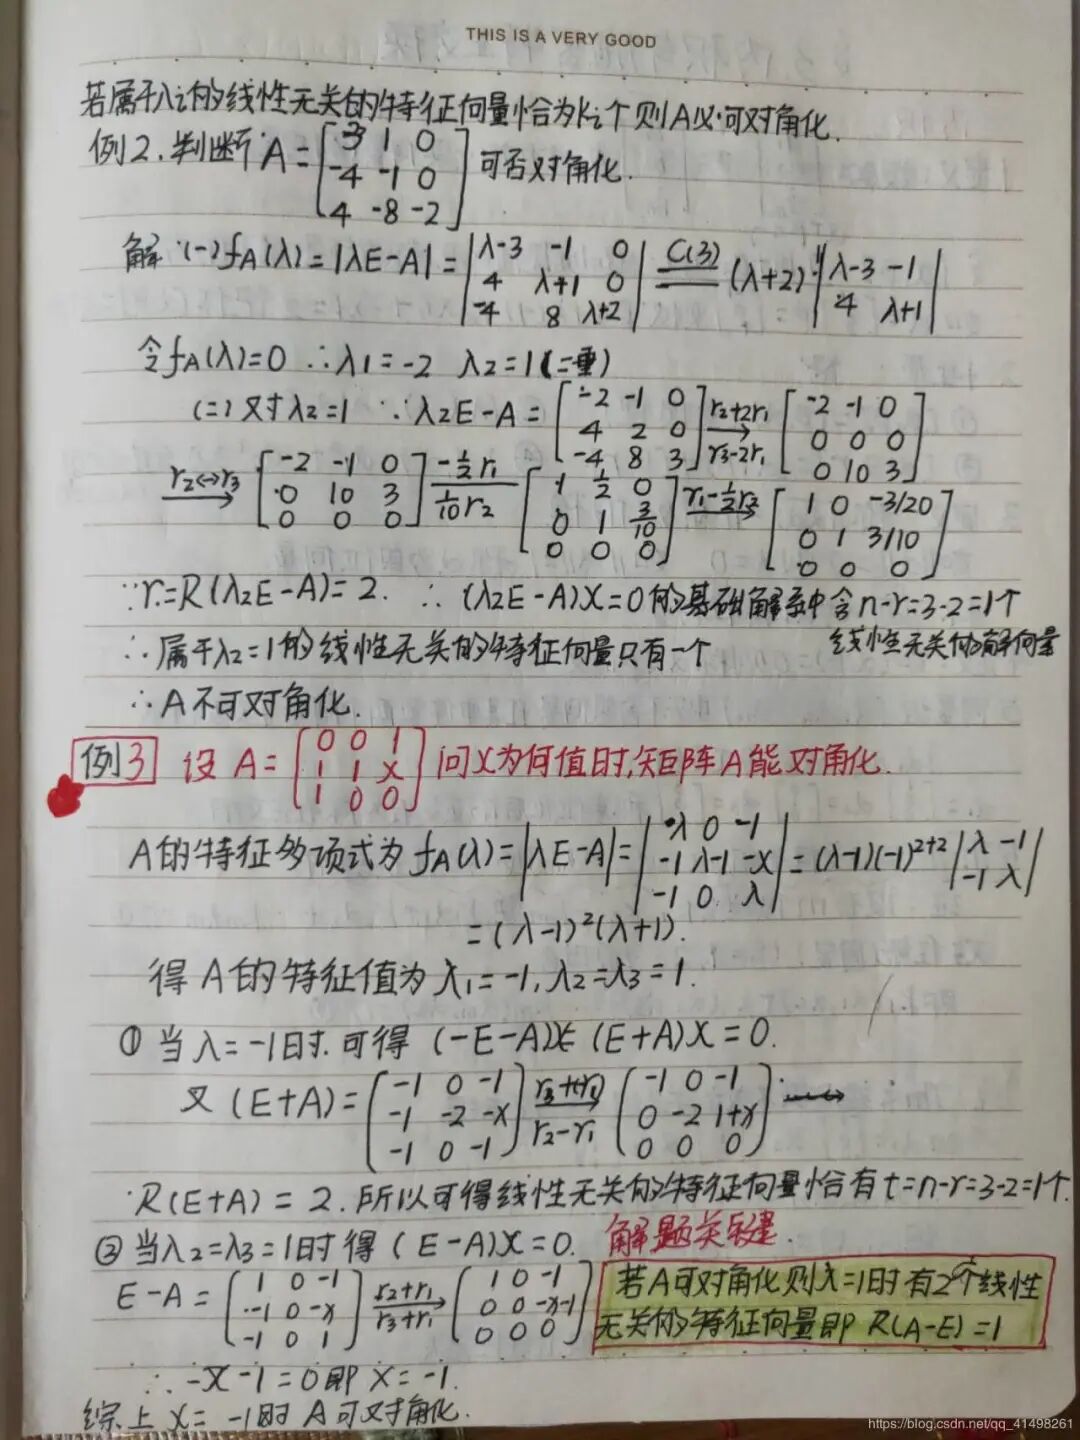 THIS IS A VERY GOOD
若属于λi的线性无关的特征向量恰为ki个 则A必可对角化.
例2.判断 A=[3 1 0; -4 -1 0; 4 -8 -2] 可否对角化.
解 (一) fA(λ)=|λE-A|=|λ-3 -1 0; 4 λ+1 0; -4 8 λ+2| C(3) (λ+2)·|λ-3 -1; 4 λ+1|
令fA(λ)=0 ∴λ1=-2 λ2=1(二重)
(二) 对λ2=1 ∵λ2E-A=[-2 -1 0; 4 2 0; -4 8 3] r2+2r1 r3-2r1 → [-2 -1 0; 0 0 0; 0 10 3]
r2↔r3 → [-2 -1 0; 0 10 3; 0 0 0] -1/2 r1 1/10 r2 [1 1/2 0; 0 1 3/10; 0 0 0] r1-1/2r2 → [1 0 -3/20; 0 1 3/10; 0 0 0]
∵r=R(λ2E-A)=2. ∴ (λ2E-A)X=0的基础解系中含n-r=3-2=1个
线性无关的解向量
∴属于λ2=1的线性无关的特征向量只有一个
∴A不可对角化.
例3 设A=[0 0 1; 1 1 x; 1 0 0] 问x为何值时,矩阵A能对角化.
A的特征多项式为fA(λ)=|λE-A|=|λ 0 -1; -1 λ-1 -x; -1 0 λ|=(λ-1)(-1)^2+2|λ -1; -1 λ|
=(λ-1)²(λ+1).
得A的特征值为λ1=-1,λ2=λ3=1.
① 当λ=-1时.可得 (-E-A)X (E+A)X=0.
又(E+A)=(-1 0 -1; -1 -2 -x; -1 0 -1) r2-r1 → (-1 0 -1; 0 -2 1+x; 0 0 0) →
∵R(E+A)=2.所以可得线性无关的特征向量恰有t=n-r=3-2=1个.
② 当λ2=λ3=1时 得(E-A)X=0. 解题关键.
E-A=(1 0 -1; -1 0 -x; -1 0 1) r2+r1 r3+r1 → (1 0 -1; 0 0 -x-1; 0 0 0)
若A可对角化则λ=1时有2个线性
无关的特征向量即R(A-E)=1
∴ -x-1=0即x=-1.
综上 x=-1时A可对角化.
https://blog.csdn.net/qq_41498261